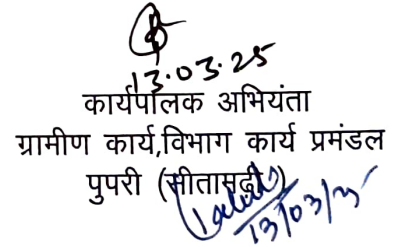 13.03.25
कार्यपालक अभियंता
ग्रामीण कार्य,विभाग कार्य प्रमंडल
पुपरी (सीतामढ़ी)
13/03/25